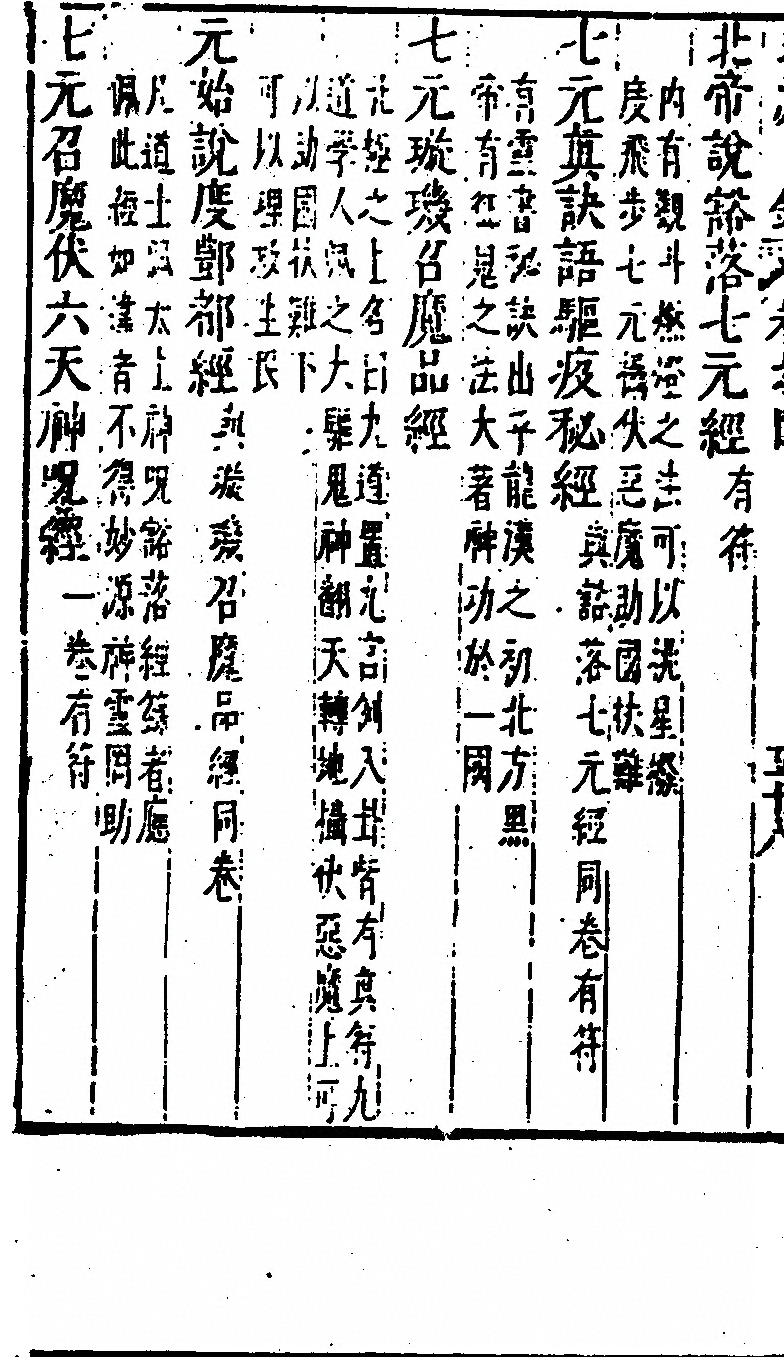 北帝說豁落七元經有符
内有觀斗燃燈之法可以洗星
度飛步七元攝伏惡魔助國扶難
七元真訣語驅疫秘經與豁落七元經同卷有符
有靈書秘訣出乎龍漢之初北方黑
帝有征鬼之法大著神功於一國
七元璇璣召魔品經
北極之上名曰九道置九宮列入卦皆有真符九
道學人佩之大驅鬼神翻天轉地攝伏惡魔上可
以助國扶難下
可以理政生民
元始說度酆都經與璇璣召魔品經同卷
凡道士佩太上神呪豁落經籙者應
佩此經如違者不得妙源神靈罔助
七元召魔伏六天神呪經一卷有符